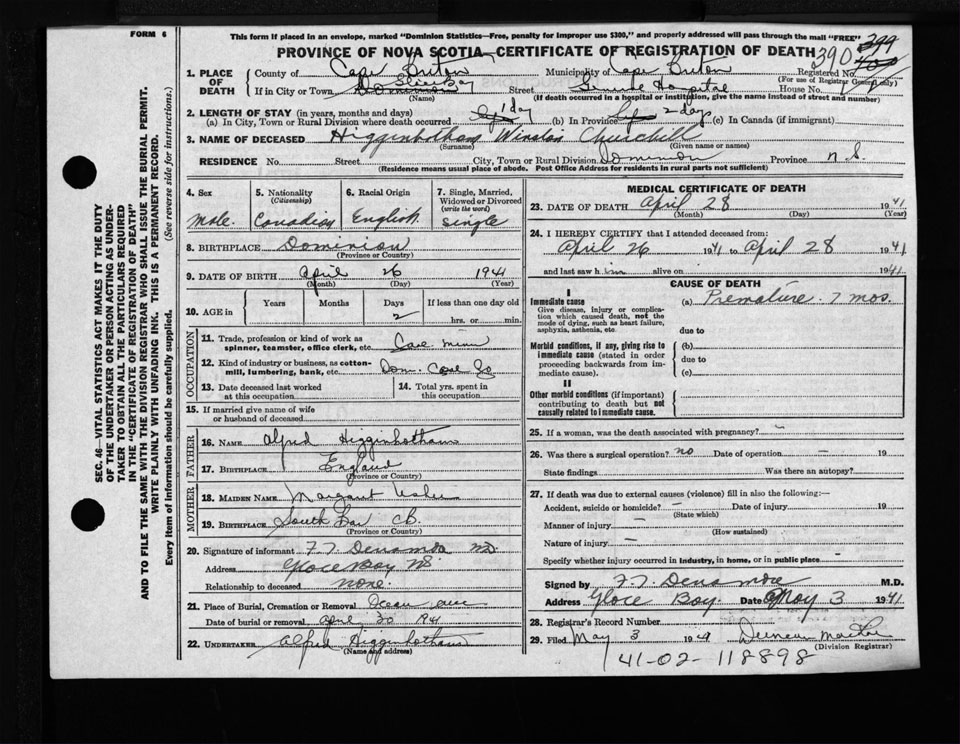 FORM 6
This form if placed in an envelope, marked "Dominion Statistics—Free, penalty for improper use $300," and properly addressed will pass through the mail "FREE"
PROVINCE OF NOVA SCOTIA—CERTIFICATE OF REGISTRATION OF DEATH 390 399
1. PLACE OF DEATH County of Cape Breton Municipality of Cape Breton Registered No. 400
(For use of Registrar General only)
If in City or Town Dominion Glace Bay Street General Hospital House No.
(Name) (If death occurred in a hospital or institution, give the name instead of street and number)
2. LENGTH OF STAY (in years, months and days)
(a) In City, Town or Rural Division where death occurred 1 day (b) In Province 2 days (c) In Canada (if immigrant)
3. NAME OF DECEASED Higginbotham Winston Churchill
(Surname) (Given name or names)
RESIDENCE No. Street City, Town or Rural Division Dominion Province N.S.
(Residence means usual place of abode. Post Office Address for residents in rural parts not sufficient)
4. Sex Male
5. Nationality (Citizenship) Canadian
6. Racial Origin English
7. Single, Married, Widowed or Divorced (write the word) Single
8. BIRTHPLACE Dominion
(Province or Country)
9. DATE OF BIRTH April 26 1941
(Month) (Day) (Year)
10. AGE in Years Months Days 2 If less than one day old
hrs. or min.
OCCUPATION
11. Trade, profession or kind of work as spinner, teamster, office clerk, etc.
12. Kind of industry or business, as cotton-mill, lumbering, bank, etc. Dom. Coal Co
13. Date deceased last worked at this occupation
14. Total yrs. spent in this occupation
15. If married give name of wife or husband of deceased
FATHER
16. NAME Alfred Higginbotham
17. BIRTHPLACE England
(Province or Country)
MOTHER
18. MAIDEN NAME Margaret
19. BIRTHPLACE South Bar CB.
(Province or Country)
20. Signature of informant F. T. Densmore MD
Address Glace Bay NS
Relationship to deceased none.
21. Place of Burial, Cremation or Removal Ocean
Date of burial or removal April 30 1941
22. UNDERTAKER Alfred Higginbotham
(Name and address)
MEDICAL CERTIFICATE OF DEATH
23. DATE OF DEATH April 28 1941
(Month) (Day) (Year)
24. I HEREBY CERTIFY that I attended deceased from:
April 26 1941 to April 28 1941
and last saw him alive on 1941
CAUSE OF DEATH
I
Immediate cause (a) Premature. 7 mos.
Give disease, injury or complication which caused death, not the mode of dying, such as heart failure, asphyxia, asthenia, etc.
due to
Morbid conditions, if any, giving rise to immediate cause (stated in order proceeding backwards from immediate cause).
(b)
due to
(c)
II
Other morbid conditions (if important) contributing to death but not causally related to immediate cause.
25. If a woman, was the death associated with pregnancy? –
26. Was there a surgical operation? no Date of operation – 19
State findings Was there an autopsy?
27. If death was due to external causes (violence) fill in also the following:—
Accident, suicide or homicide? – Date of injury 19
(State which)
Manner of injury –
(How sustained)
Nature of injury –
Specify whether injury occurred in industry, in home, or in public place
Signed by F. T. Densmore M.D.
Address Glace Bay. Date May 3 1941
28. Registrar's Record Number
29. Filed May 3 1941 Duncan
(Division Registrar)
41-02-118898
SEC. 46—VITAL STATISTICS ACT MAKES IT THE DUTY
OF THE UNDERTAKER OR PERSON ACTING AS UNDER-
TAKER TO OBTAIN ALL THE PARTICULARS REQUIRED
IN THE "CERTIFICATE OF REGISTRATION OF DEATH"
AND TO FILE THE SAME WITH THE DIVISION REGISTRAR WHO SHALL ISSUE THE BURIAL PERMIT.
WRITE PLAINLY WITH UNFADING INK. THIS IS A PERMANENT RECORD.
Every item of Information should be carefully supplied. (See reverse side for instructions.)